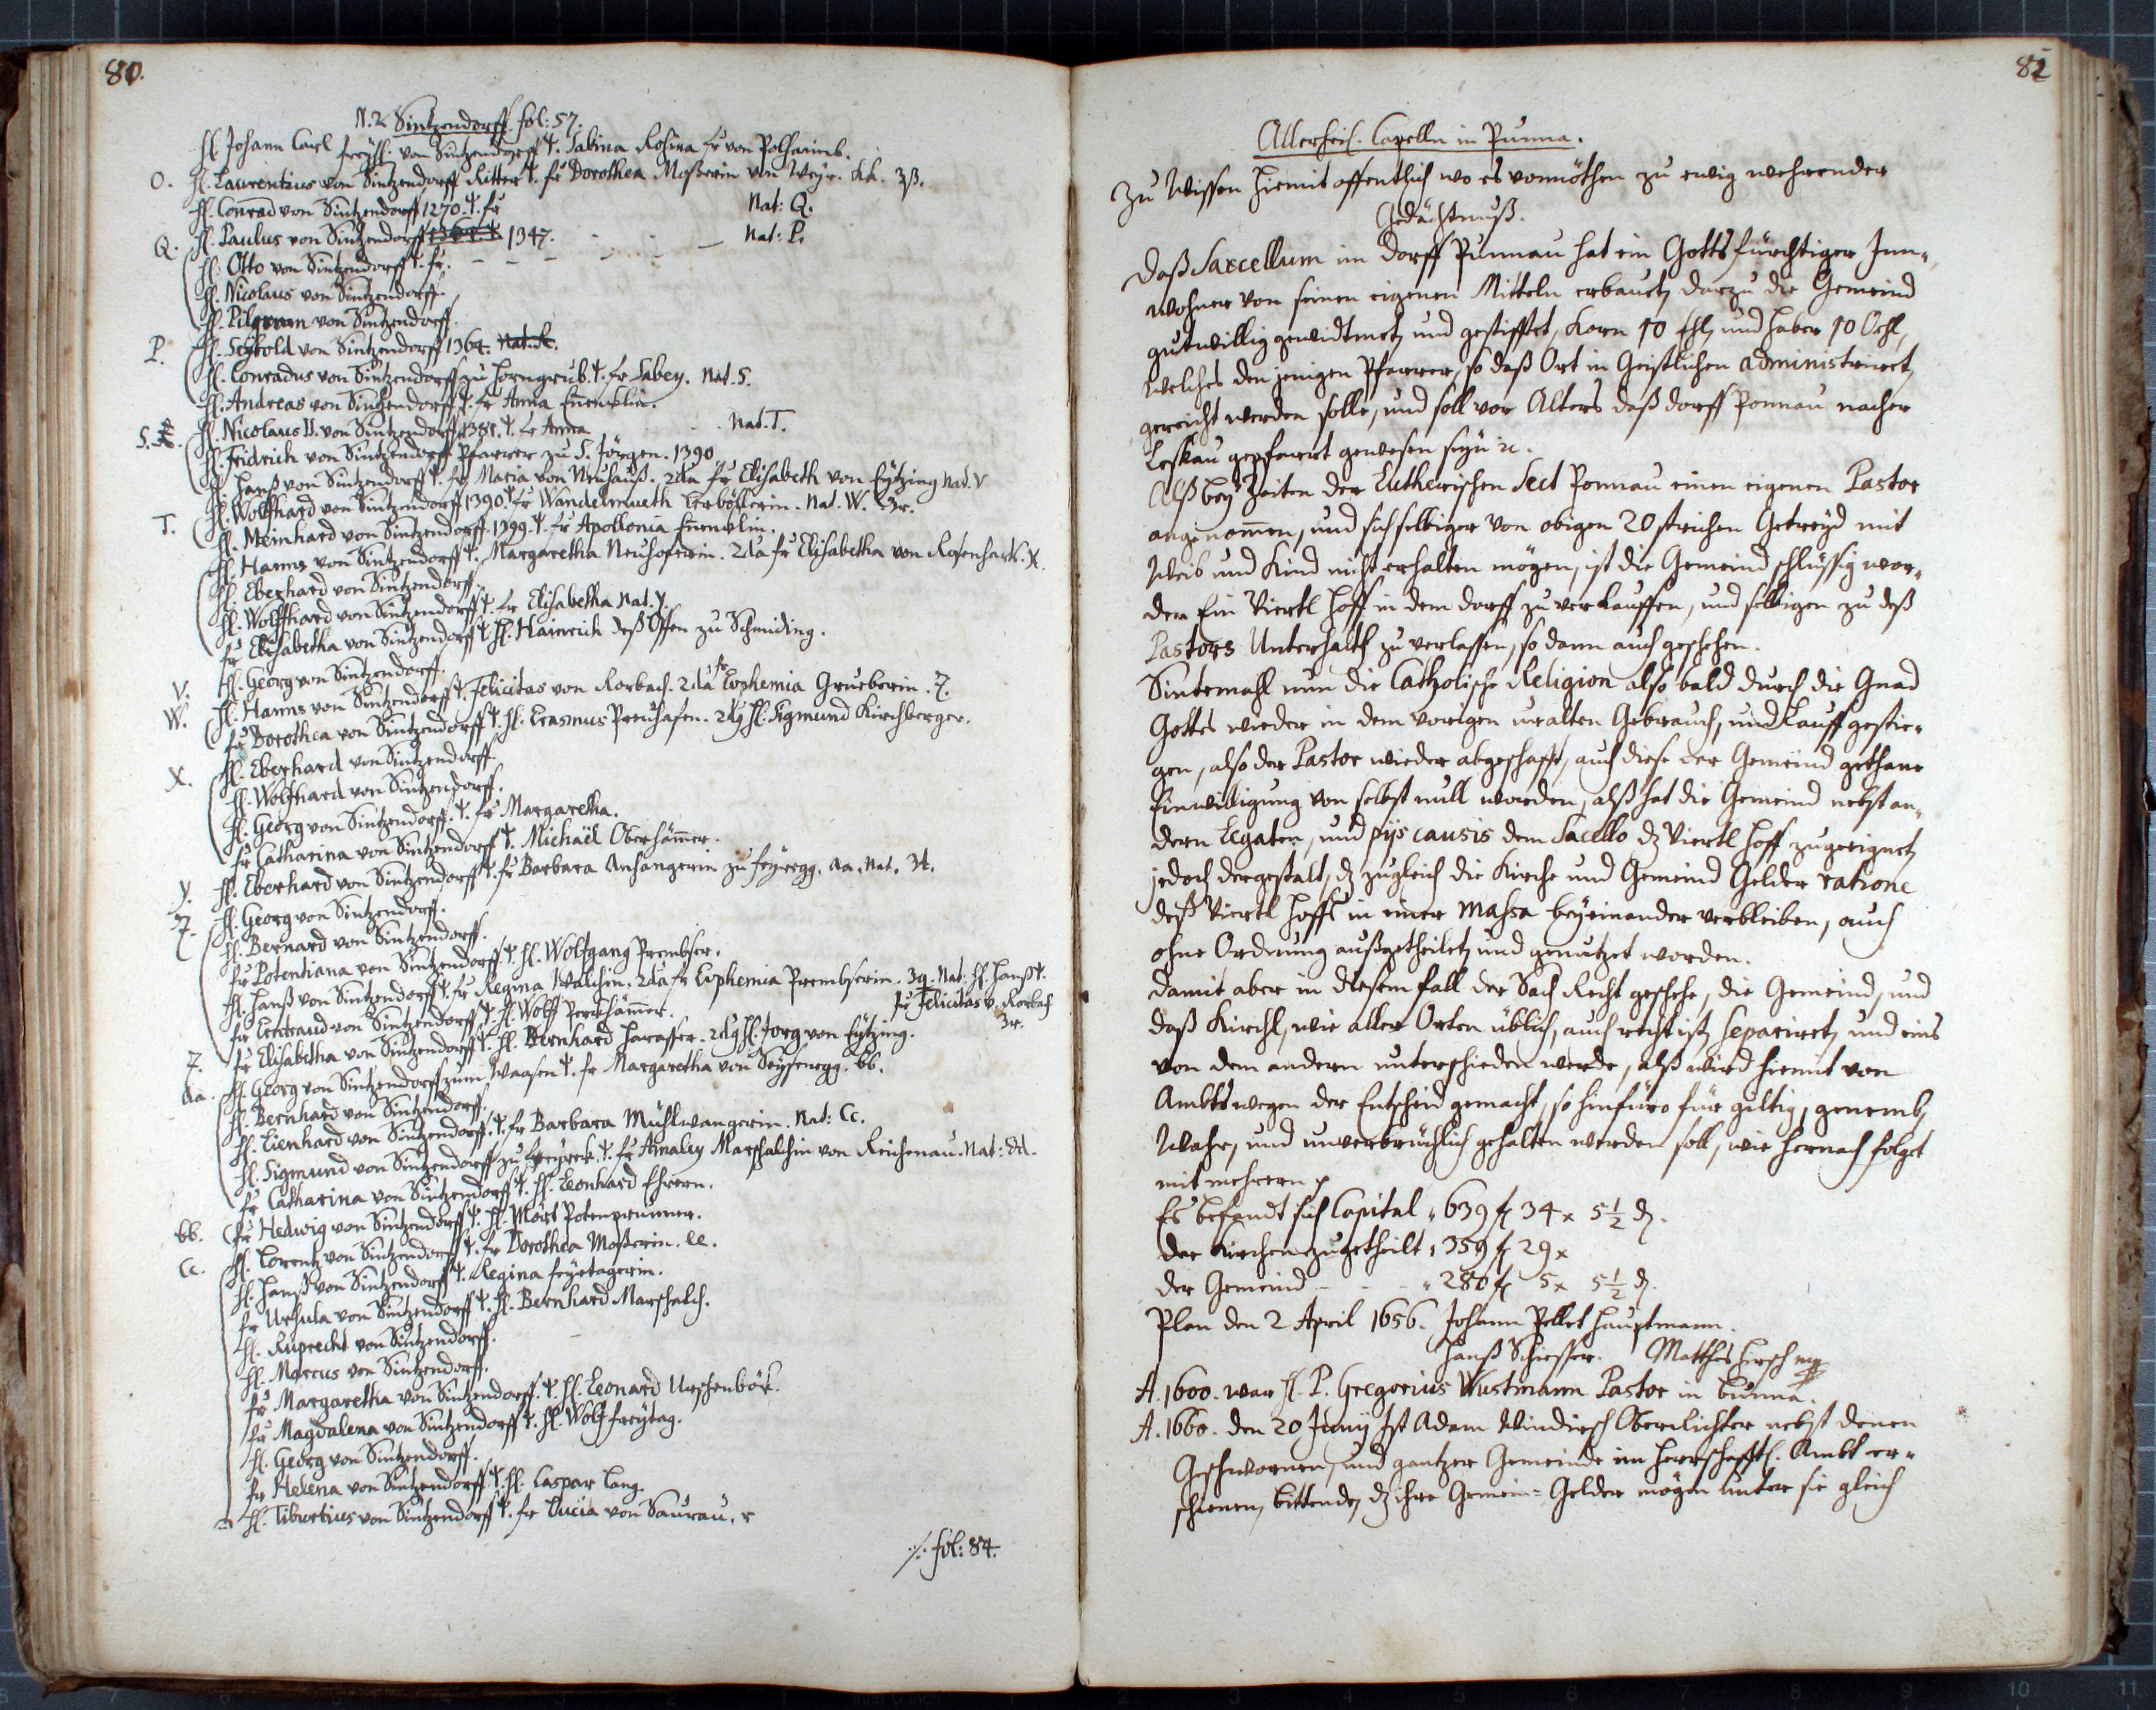 80.
N.2 Sintzendorff. fol: 57.
H. Johann Carl freyH: von Sintzendorff ✝. Sabina Rosina fr von Polhaimb.
O. H. Laurentius von Sintzendorff Ritter ✝. fr Dorothea Moßerin von Weyr. kk. 3ß.
H. Conrad von Sintzendorff 1270. ✝. fr Nat: Q.
Q. H. Paulus von Sintzendorff 1347. Nat: P.
H. Otto von Sintzendorff ✝. fr.
H. Nicolaus von Sintzendorff.
H. Pilgram von Sintzendorff.
P. H. Seybold von Sintzendorff 1364. Nat. R.
H. Conradus von Sintzendorff zu Horngrub. ✝. fr Sabey. Nat. S.
H. Andreas von Sintzendorff ✝. fr Anna Ennenklin.
S. H. Nicolaus II. von Sintzendorff 1381. ✝. fr Anna Nat. T.
H. Fridrich von Sintzendorff Pfarrer zu S. Jörgen. 1390
H. Hanß von Sintzendorff ✝. fr Maria von Neuhauß. 2da fr Elisabeth von Eytzing Nat. V
H. Wolfhard von Sintzendorff 1390 ✝ fr Wandelmueth Lerbößerin. Nat. W. 3r.
T. H. Meinhard von Sintzendorff. 1399. ✝. fr Apollonia Ennenklin.
H. Hanns von Sintzendorff ✝. Margaretha Neuhoferin. 2da fr Elisabetha von Rosenhardt. X.
H. Eberhard von Sintzendorff.
H. Wolffhard von Sintzendorff ✝. fr Elisabetha Nat. Y.
fr Elisabetha von Sintzendorff ✝ H. Hainrich deß Offen zu Schmiding.
H. Georg von Sintzendorff.
V. H. Hanns von Sintzendorff ✝. Felicitas von Rorbach. 2da fr Euphemia Grueberin. Z.
W. fr Dorothea von Sintzendorff ✝. H. Erasmus Preuhafen. 2dg H. Sigmund Kirchberger.
X. H. Eberhard von Sintzendorff.
H. Wolfhard von Sintzendorff.
H. Georg von Sintzendorff. ✝. fr Margaretha.
fr Catharina von Sintzendorff ✝. Michaël Oberhämmer.
Y. H. Eberhard von Sintzendorff ✝. fr Barbara Anhangerin zu feyregg. aa. Nat. 3t.
Z. H. Georg von Sintzendorff.
H. Bernard von Sintzendorff.
fr Potentiana von Sintzendorff ✝. H. Wolfgang Prembser.
H. Hanß von Sintzendorff ✝. fr Regina Walchin. 2da fr Euphemia Prembserin. 3q. Nat: H. Hanß ✝.
fr Gertraud von Sintzendorff ✝. H. Wolff Perkhämmer. fr Felicitas v. Rorbach
Z. fr Elisabetha von Sintzendorff ✝. H. Bernhard Harasser. 2dg H. Jorg von Eytzing. 3r.
aa. H. Georg von Sintzendorff zum Waasen ✝. fr Margaretha von Seysenegg. bb.
H. Bernhard von Sintzendorff.
H. Lienhard von Sintzendorff. ✝. fr Barbara Mühlwangerin. Nat: Cc.
H. Sigmund von Sintzendorff zu freyreck. ✝. fr Amaley Marschalchin von Reichenau. Nat: dd.
fr Catharina von Sintzendorff ✝. H. Leonhard Ehrern.
bb. fr Hedwig von Sintzendorff ✝. H. Mört Potenprunner.
Cc. H. Lorentz von Sintzendorff ✝. fr Dorothea Moßerin. ee.
H. Hanß von Sintzendorff ✝. Regina feyrtagerin.
fr Ursula von Sintzendorff ✝. H. Bernhard Marschalch.
H. Ruprecht von Sintzendorff.
H. Marcus von Sintzendorff.
fr Margaretha von Sintzendorff. ✝. H. Leonard Urschenböck.
fr Magdalena von Sintzendorff ✝. H. Wolf freytag.
H. Georg von Sintzendorff.
fr Helena von Sintzendorff. ✝. H. Caspar Lang.
H. Tiburtius von Sintzendorff ✝. fr Lucia von Saurau.
./. fol: 84.
82
Allerheil. Capelln in Punna.
Zu Wissen hiemit offentlich wo es vonnöthen zu ewig wehrender
Gedächtnuß.
Daß Sarcellum im Dorff Punnau hat ein Gottsfürchtiger Inn-
wohner von seinen eigenen Mitteln erbauet, darzu die Gemeind
gutwillig gewidtmet, und gestifftet, Korn 10 und Haber 10
welches den jenigen Pfarrer, so daß Ort in Geistlichen administriret,
gereicht werden solle, und soll vor Alters daß Dorff Ponnau nacher
Leskau gepfarrt gewesen seyn ꝛc.
Alß bey Zeiten der Lutherischen Sect Ponnau einen eigenen Pastor
angenommen, und sich selbiger von obigen 20 strichen Getreyd mit
Weib und Kind nicht erhalten mögen, ist die Gemeind schlüssig wor-
den Ein Viertl Hoff in dem Dorff zu verkauffen, und selbigen zu deß
Pastors Unterhalth zu verlassen, so dann auch geschehen.
Sintemahl nun die Catholische Religion also bald durch die Gnad
Gottes wieder in dem vorigen uralten Gebrauch, und Lauff gestie-
gen, also der Pastor wieder abgeschafft, auch diese der Gemeind gethane
Einwilligung von selbst null worden, alß hat die Gemeind nebst an-
dern Legaten, und pijs causis dem Sacello dz Viertl Hoff zugeeignet,
jedoch dergestalt, dz zugleich die Kirche und Gemeind Gelder ratione
deß Viertl Hoffs in einer Massa beyeinander verbleiben, auch
ohne Ordnung außgetheilet, und genutzet worden.
Damit aber in diesem fall der Sach Recht geschehe, die Gemeind, und
daß Kirchl, wie aller Orten üblich, auch recht ist, separiret, und eins
von dem andern unterschieden werde, alß wird hiemit von
Ambts wegen der Entscheid gemacht, so hinfüro für giltig, genemb,
Wahr, und unverbrüchlich gehalten werden soll, wie hernach folget
mit mehrern
Es befandt sich Capital „ 639 f 34 x 5½ d.
der Kirchen zugetheilt „ 359 f 29 x
der Gemeind - - „ 280 f 5 x 5½ d.
Plan den 2 April 1656. Johann Pellet Hauptmann.
Hanß Schiesser. Matthes Hirsch mp
A. 1600. war H. P. Gregorius Wustmann Pastor in Bunna.
A. 1660. den 20 Junij Ist Adam Windirsch Obernlichter nebst denen
Geschwornen, und gantzer Gemeinde im Herrschafftl. Ambt er-
schienen, bittende, dz ihre Gemein-Gelder mögen unter sie gleich